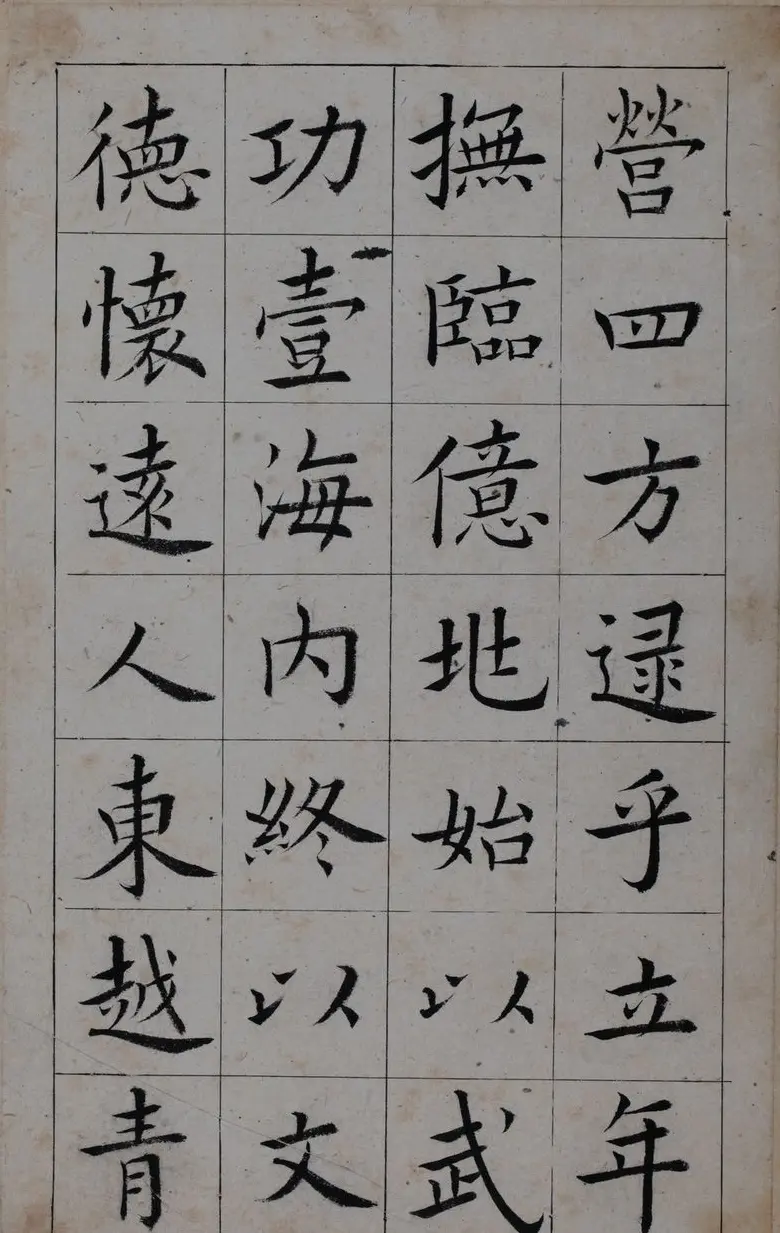 營四方逯乎立年
撫臨億兆始以武
功壹海内終以文
德懷遠人東越青